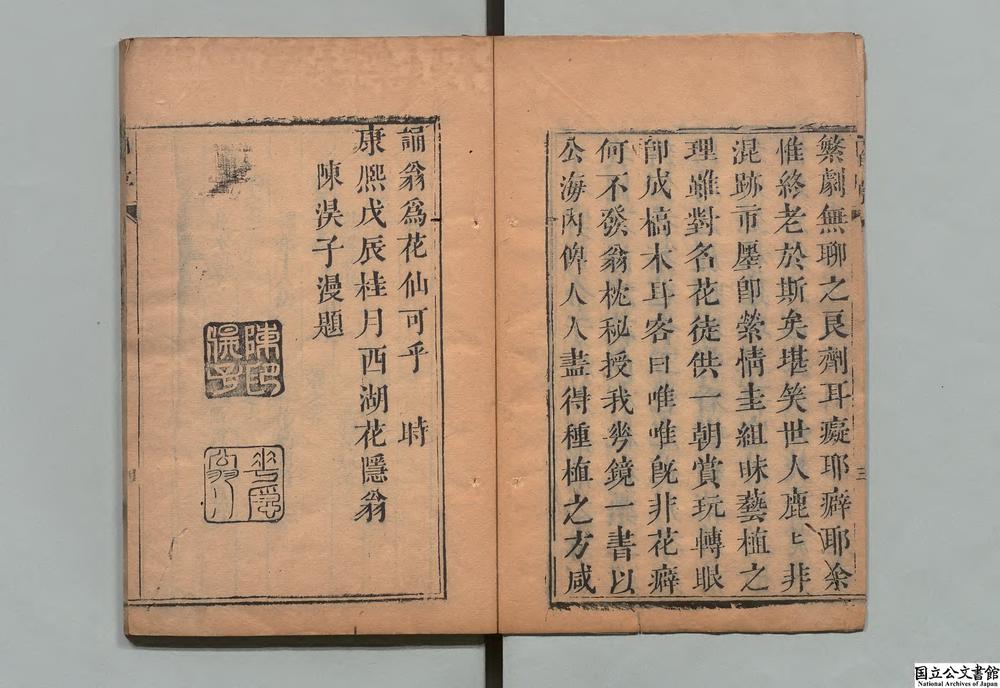 繁劇無聊之良劑耳癡耶癖耶余
惟終老於斯矣堪笑世人鹿ヒ非
混跡市廛卽縈情圭組昧藝植之
理雖對名花徒供一朝賞玩轉眼
卽成槁木耳客曰唯唯旣非花癖
何不發翁枕秘授我花鏡一書以
公海內俾人人盡得種植之方咸
三
誦翁爲花仙可乎　時
康熙戊辰桂月西湖花隱翁
陳淏子漫題
陳印
淏子
花隱
翁
国立公文書館
National Archives of Japan